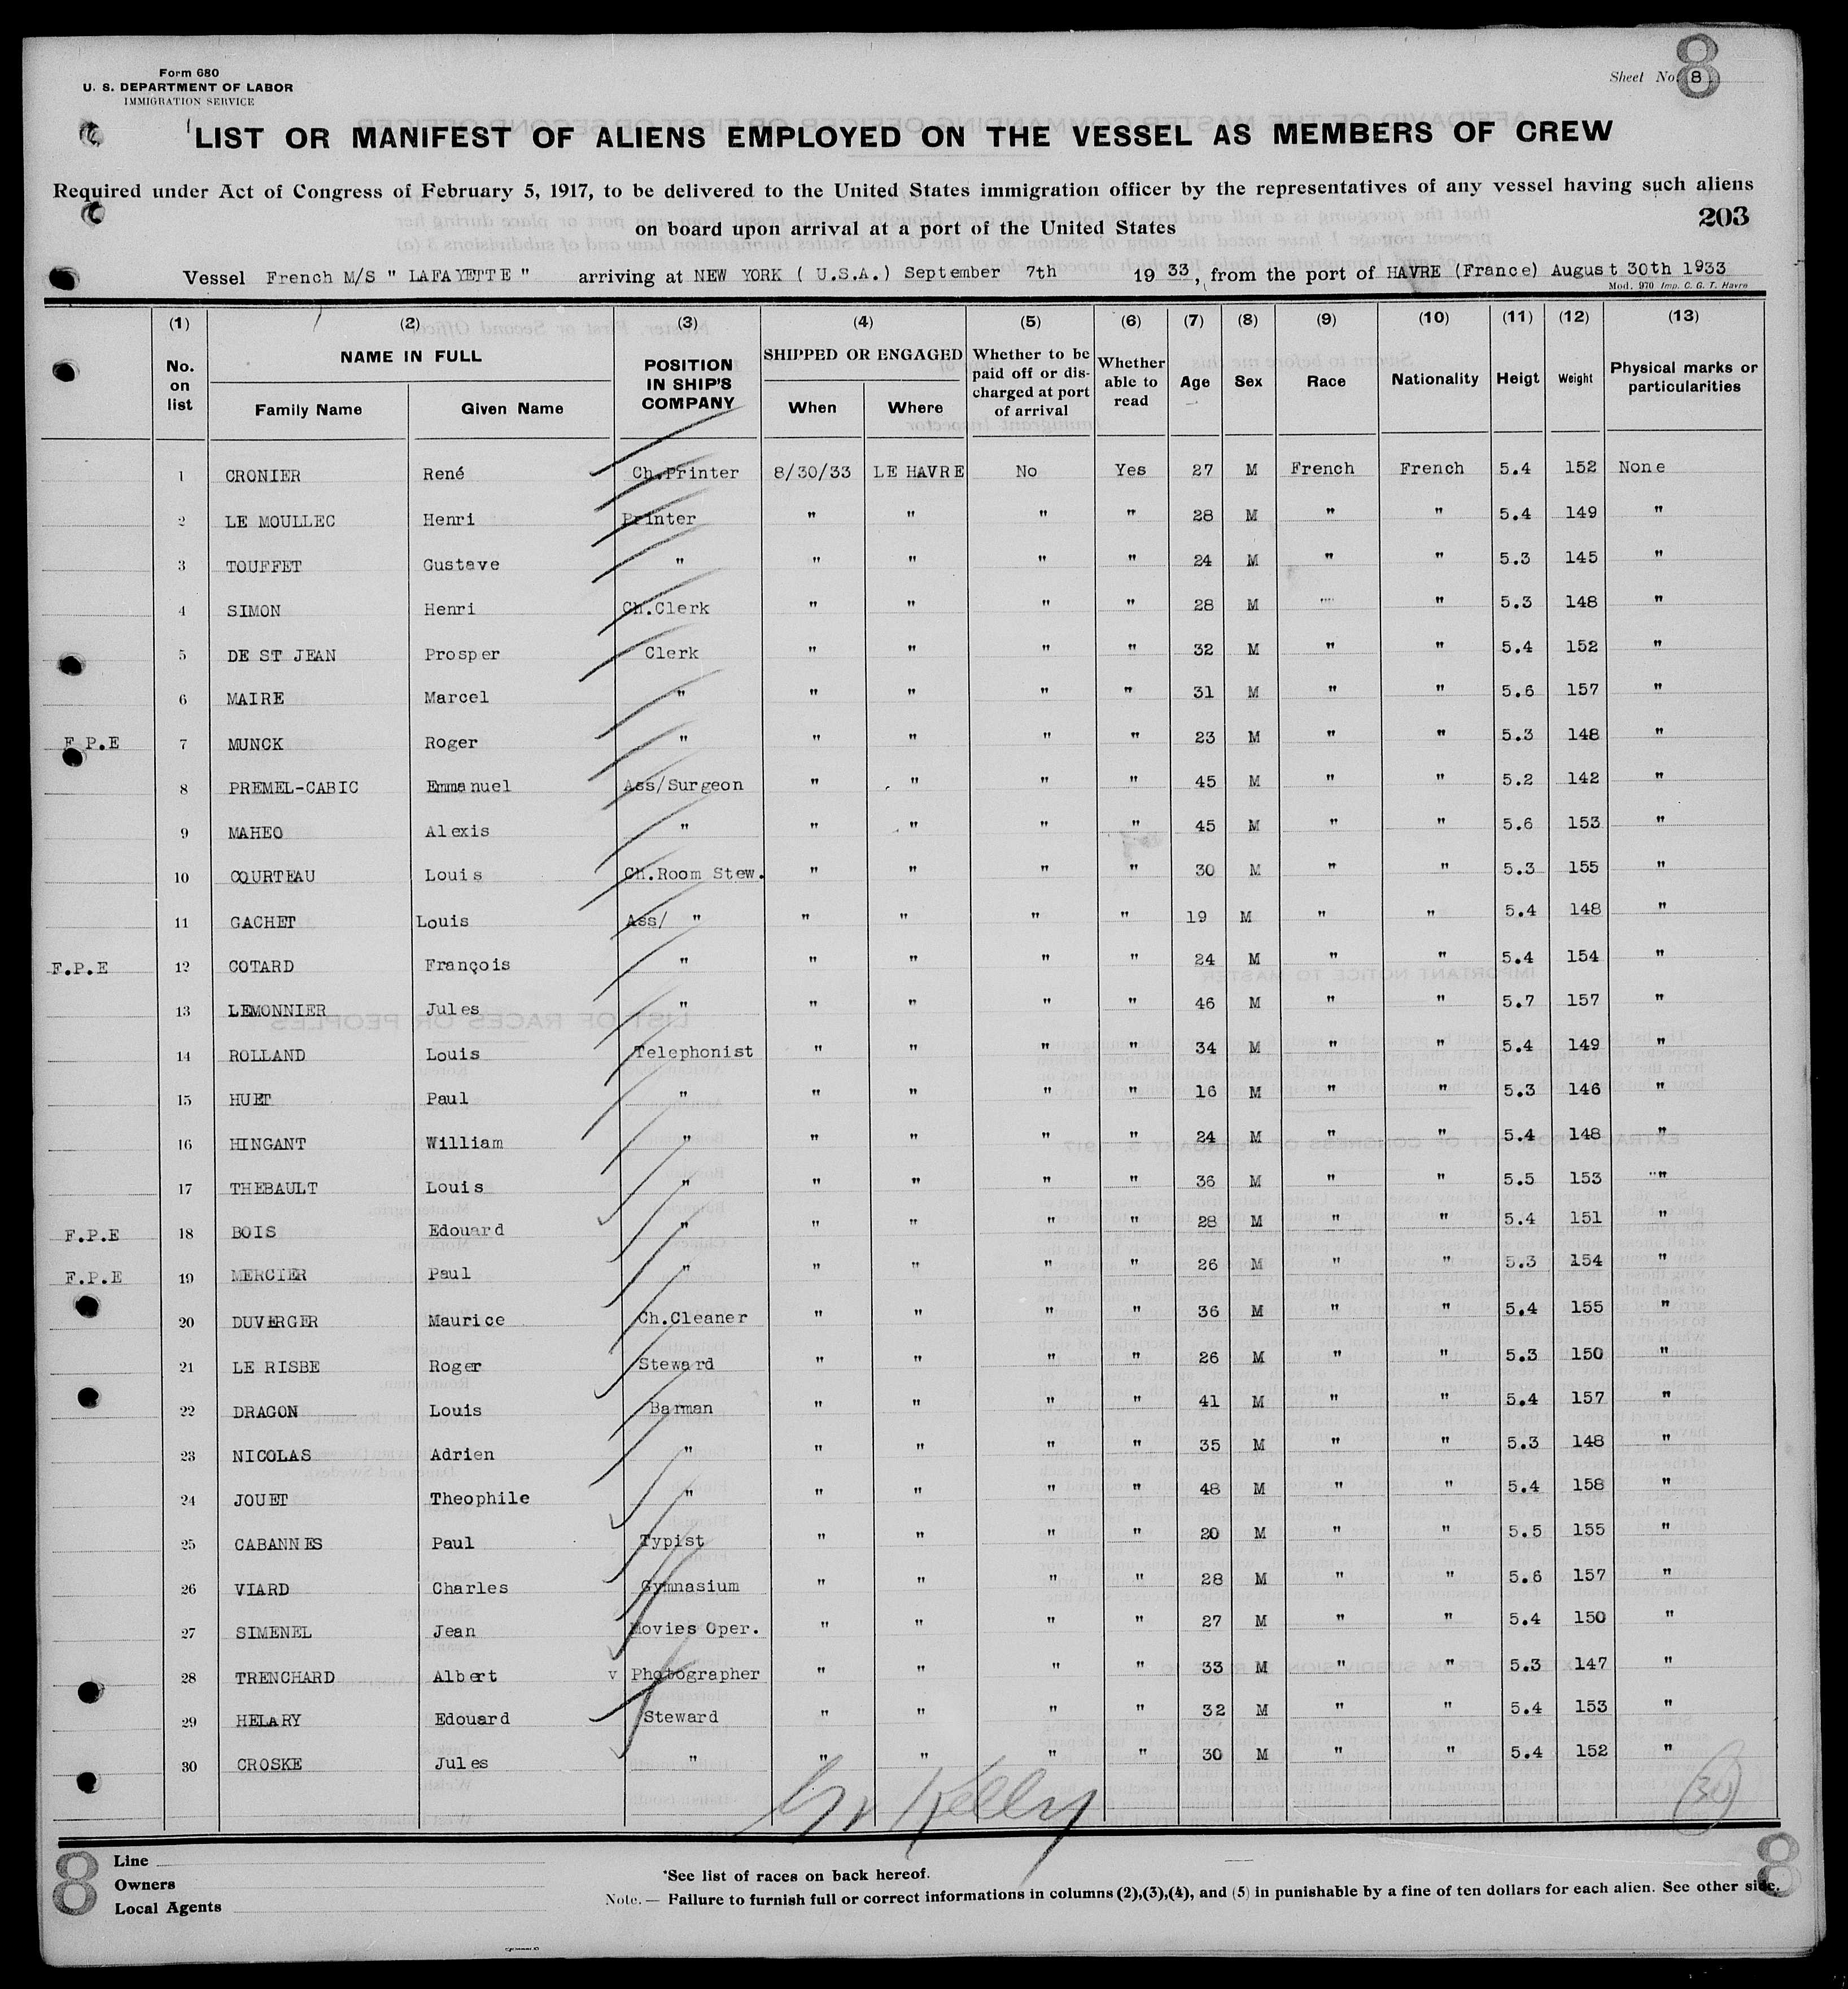 Form 680
U. S. DEPARTMENT OF LABOR
IMMIGRATION SERVICE
Sheet No. 8
8
LIST OR MANIFEST OF ALIENS EMPLOYED ON THE VESSEL AS MEMBERS OF CREW
Required under Act of Congress of February 5, 1917, to be delivered to the United States immigration officer by the representatives of any vessel having such aliens
on board upon arrival at a port of the United States
203
Vessel French M/S " LAFAYETTE " arriving at NEW YORK ( U.S.A.) September 7th 19 33, from the port of HAVRE (France) August 30th 1933
Mod. 970 Imp. C. G. T. Havre
(1) (2) (3) (4) (5) (6) (7) (8) (9) (10) (11) (12) (13)
No. on list NAME IN FULL Family Name Given Name POSITION IN SHIP'S COMPANY SHIPPED OR ENGAGED When Where Whether to be paid off or discharged at port of arrival Whether able to read Age Sex Race Nationality Heigt Weight Physical marks or particularities
1 CRONIER René Ch.Printer 8/30/33 LE HAVRE No Yes 27 M French French 5.4 152 None
2 LE MOULLEC Henri Printer " " " " 28 M " " 5.4 149 "
3 TOUFFET Gustave " " " " " 24 M " " 5.3 145 "
4 SIMON Henri Ch.Clerk " " " " 28 M " " 5.3 148 "
5 DE ST JEAN Prosper Clerk " " " " 32 M " " 5.4 152 "
6 MAIRE Marcel " " " " " 31 M " " 5.6 157 "
F.P.E 7 MUNCK Roger " " " " " 23 M " " 5.3 148 "
8 PREMEL-CABIC Emmanuel Ass/Surgeon " " " " 45 M " " 5.2 142 "
9 MAHEO Alexis " " " " " 45 M " " 5.6 153 "
10 COURTEAU Louis Ch.Room Stew. " " " " 30 M " " 5.3 155 "
11 GACHET Louis Ass/ " " " " " 19 M " " 5.4 148 "
F.P.E 12 COTARD François " " " " " 24 M " " 5.4 154 "
13 LEMONNIER Jules " " " " " 46 M " " 5.7 157 "
14 ROLLAND Louis Telephonist " " " " 34 M " " 5.4 149 "
15 HUET Paul " " " " " 16 M " " 5.3 146 "
16 HINGANT William " " " " " 24 M " " 5.4 148 "
17 THEBAULT Louis " " " " " 36 M " " 5.5 153 "
F.P.E 18 BOIS Edouard " " " " " 28 M " " 5.4 151 "
F.P.E 19 MERCIER Paul " " " " " 26 M " " 5.3 154 "
20 DUVERGER Maurice Ch.Cleaner " " " " 36 M " " 5.4 155 "
21 LE RISBE Roger Steward " " " " 26 M " " 5.3 150 "
22 DRAGON Louis Barman " " " " 41 M " " 5.4 157 "
23 NICOLAS Adrien " " " " " 35 M " " 5.3 148 "
24 JOUET Theophile " " " " " 48 M " " 5.4 158 "
25 CABANNES Paul Typist " " " " 20 M " " 5.5 155 "
26 VIARD Charles Gymnasium " " " " 28 M " " 5.6 157 "
27 SIMENEL Jean Movies Oper. " " " " 27 M " " 5.4 150 "
28 TRENCHARD Albert v Photographer " " " " 33 M " " 5.3 147 "
29 HELARY Edouard Steward " " " " 32 M " " 5.4 153 "
30 CROSKE Jules " " " " " 30 M " " 5.4 152 "
Kelly
30
8
8
Line
Owners
Local Agents
*See list of races on back hereof.
Note.— Failure to furnish full or correct informations in columns (2),(3),(4), and (5) in punishable by a fine of ten dollars for each alien. See other side.